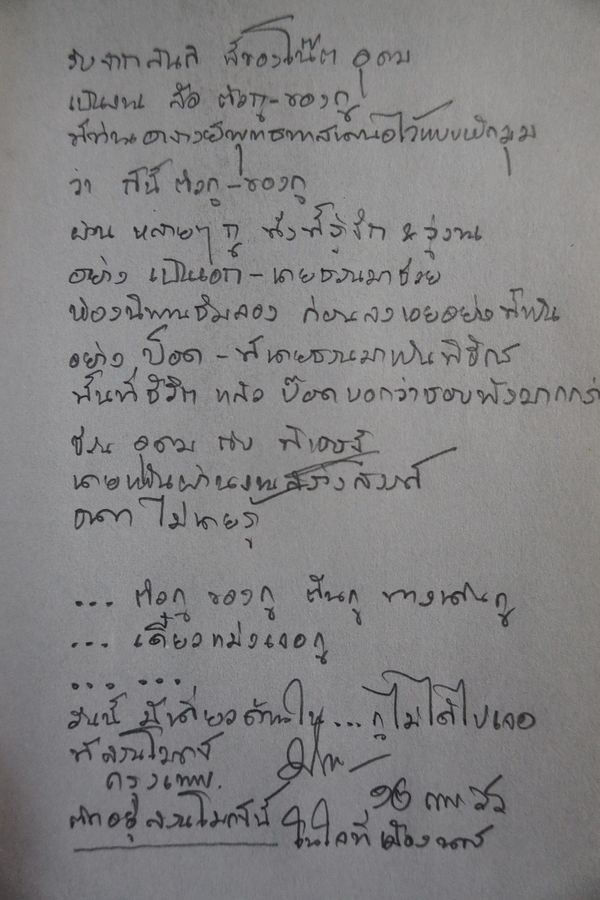 รับจากสันติ พี่ของโน๊ต อุดม
เป็นงาน สื่อ ตัวกู-ของกู
ที่ท่านอาจารย์พุทธทาสนำเสนอไว้แบบพลิกมุม
ว่า สิ่งนี้ ตัวกู-ของกู
ผ่าน หลายๆ กู ซึ่งที่รู้จัก
อย่าง เป็นเอก-เคยชวนมาช่วย
ห้องนิพพานชิมลอง ก่อนลงเอยอย่างที่เห็น
อย่าง ป๊อด-ที่เคยชวนมาเป็นพิธีกร
พื้นที่ชีวิต แล้ว ป๊อดบอกว่าชอบฟังมากกว่า
ส่วน อุดม กับ
เคยเห็นผ่านงานสร้างสรรค์
ไม่เคยรู้
... ตัวกู ของกู ตีนกู ทางเดินกู
... เดี๋ยวแม่งเจอกู
... ...
วันนี้ มีเดี่ยวด้านใน ... กูไม่ได้ไปเจอ
ที่สวนโมกข์
กรุงเทพ.
๑๒ กพ ๖๖
ติดอยู่สวนโมกข์นี้ ในใจที่เมืองนคร